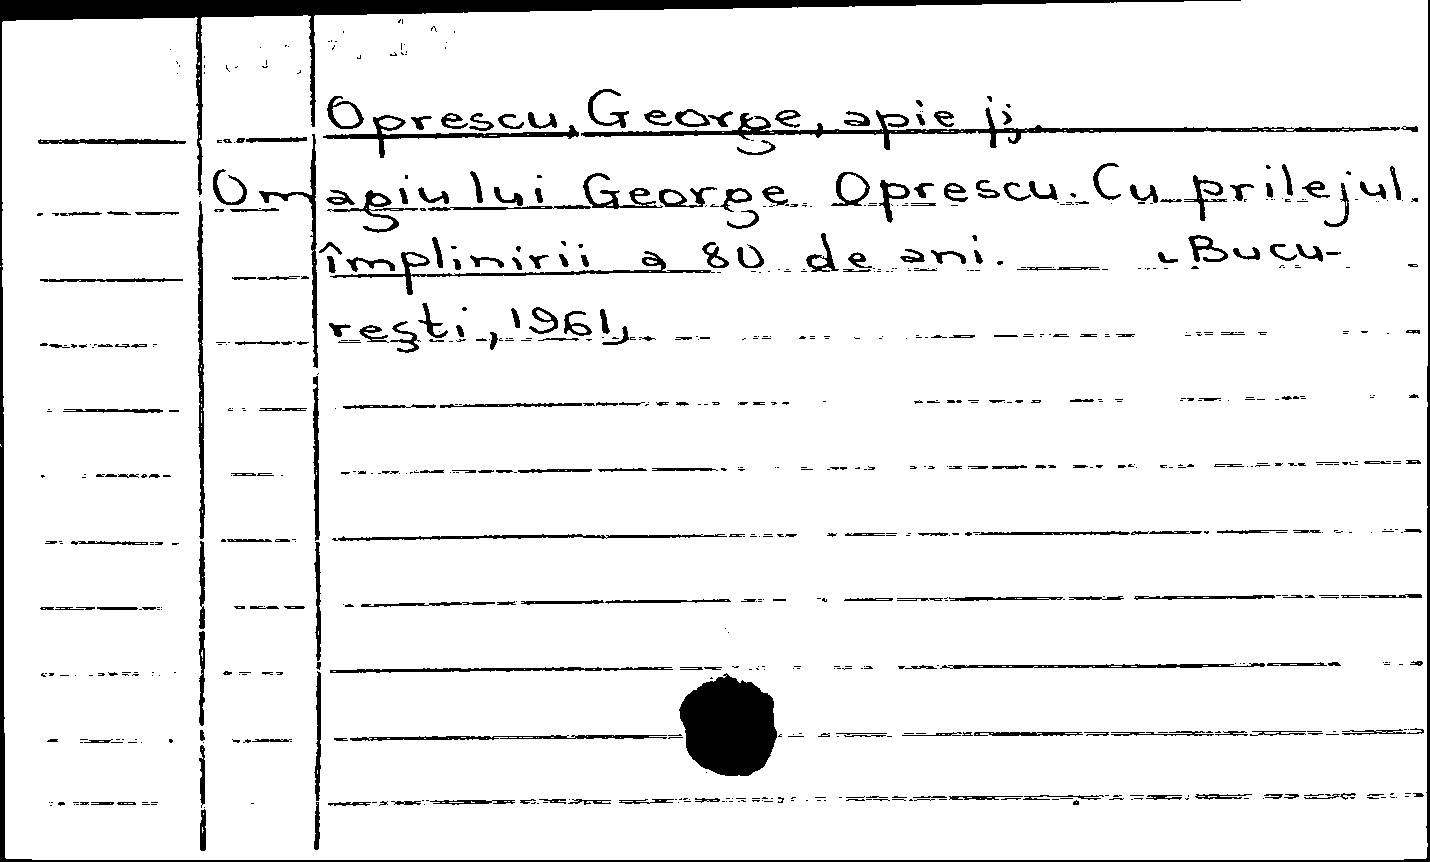 Oprescu, George, apie jį.
Omagiu lui George Oprescu. Cu prilejul
împlinirii a 80 de ani. [Bucu-
reşti, 1961]